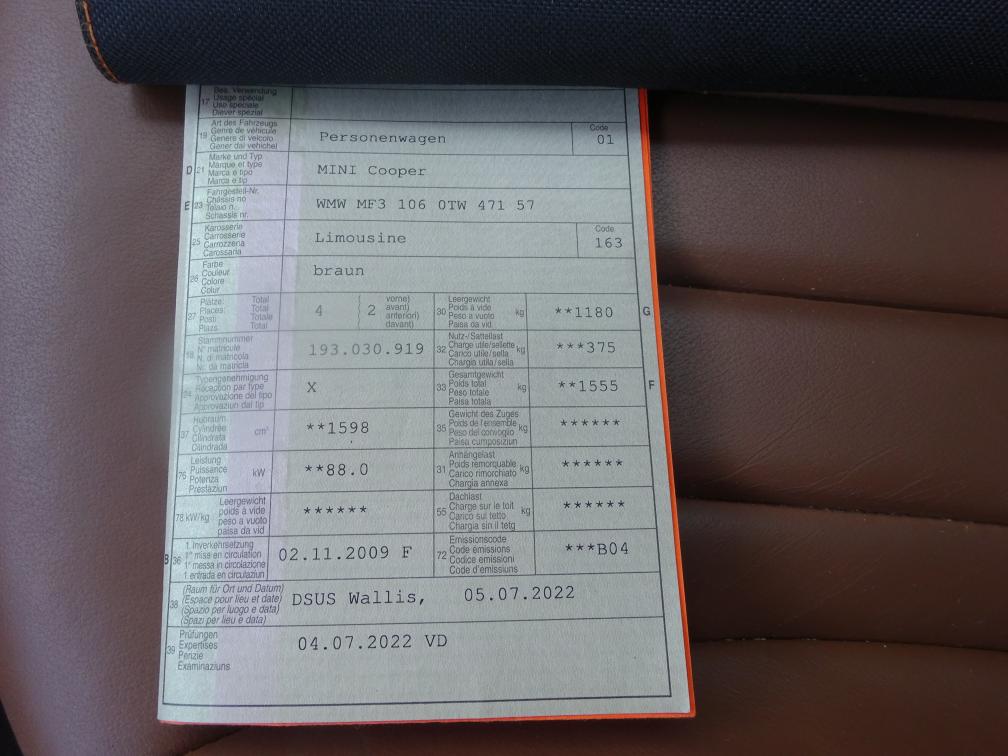 17 Bes. Verwendung
Usage spécial
Uso speciale
Diever spezial
19 Art des Fahrzeugs
Genre de véhicule
Genere di veicolo
Gener dal vehichel
Personenwagen
Code
01
D 21 Marke und Typ
Marque et type
Marca e tipo
Marca e tip
MINI Cooper
E 23 Fahrgestell-Nr.
Châssis no
Telaio n.
Schassis nr.
WMW MF3 106 0TW 471 57
25 Karosserie
Carrosserie
Carrozzeria
Carossaria
Limousine
Code
163
26 Farbe
Couleur
Colore
Colur
braun
27 Plätze: Total
Places: Total
Posti: Totale
Plazs: Total
4
2
vorne)
avant)
anteriori)
davant)
30 Leergewicht
Poids à vide
Peso a vuoto
Paisa da vid
kg
**1180
G
18 Stammnummer
N° matricule
N. di matricola
Nr. da matricla
193.030.919
32 Nutz-/Sattellast
Charge utile/sellette
Carico utile/sella
Chargia utila/sella
kg
***375
24 Typengenehmigung
Réception par type
Approvazione del tipo
Approvaziun dal tip
X
33 Gesamtgewicht
Poids total
Peso totale
Paisa totala
kg
**1555
F
37 Hubraum
Cylindrée
Cilindrata
Cilindrada
cm³
**1598
35 Gewicht des Zuges
Poids de l'ensemble
Peso del convoglio
Paisa cumposiziun
kg
******
76 Leistung
Puissance
Potenza
Prestaziun
kW
**88.0
31 Anhängelast
Poids remorquable
Carico rimorchiato
Chargia annexa
kg
******
78 kW/kg
Leergewicht
poids à vide
peso a vuoto
paisa da vid
******
55 Dachlast
Charge sur le toit
Carico sul tetto
Chargia sin il tetg
kg
******
B 36 1. Inverkehrsetzung
1re mise en circulation
1a messa in circolazione
1. entrada en circulaziun
02.11.2009 F
72 Emissionscode
Code émissions
Codice emissioni
Code d'emissiuns
***B04
38 (Raum für Ort und Datum)
(Espace pour lieu et date)
(Spazio per luogo e data)
(Spazi per lieu e data)
DSUS Wallis, 05.07.2022
39 Prüfungen
Expertises
Perizie
Examinaziuns
04.07.2022 VD